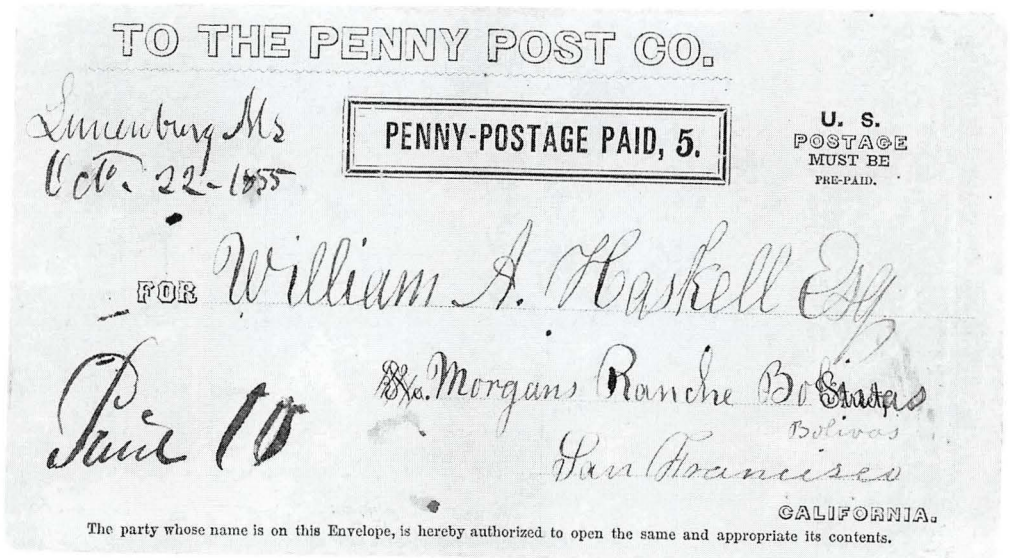 TO THE PENNY POST CO.
Lunenburg Ms
Oct. 22-1855
PENNY-POSTAGE PAID, 5.
U. S.
POSTAGE
MUST BE
PRE-PAID.
FOR William A. Haskell Esq
Morgans Ranche Bolinas
Bolivos
Paid 10
San Francisco
CALIFORNIA.
The party whose name is on this Envelope, is hereby authorized to open the same and appropriate its contents.